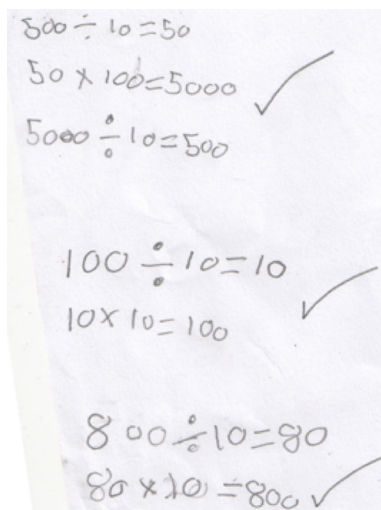 500 ÷ 10 = 50
50 × 100 = 5000
5000 ÷ 10 = 500
100 ÷ 10 = 10
10 × 10 = 100
800 ÷ 10 = 80
80 × 10 = 800